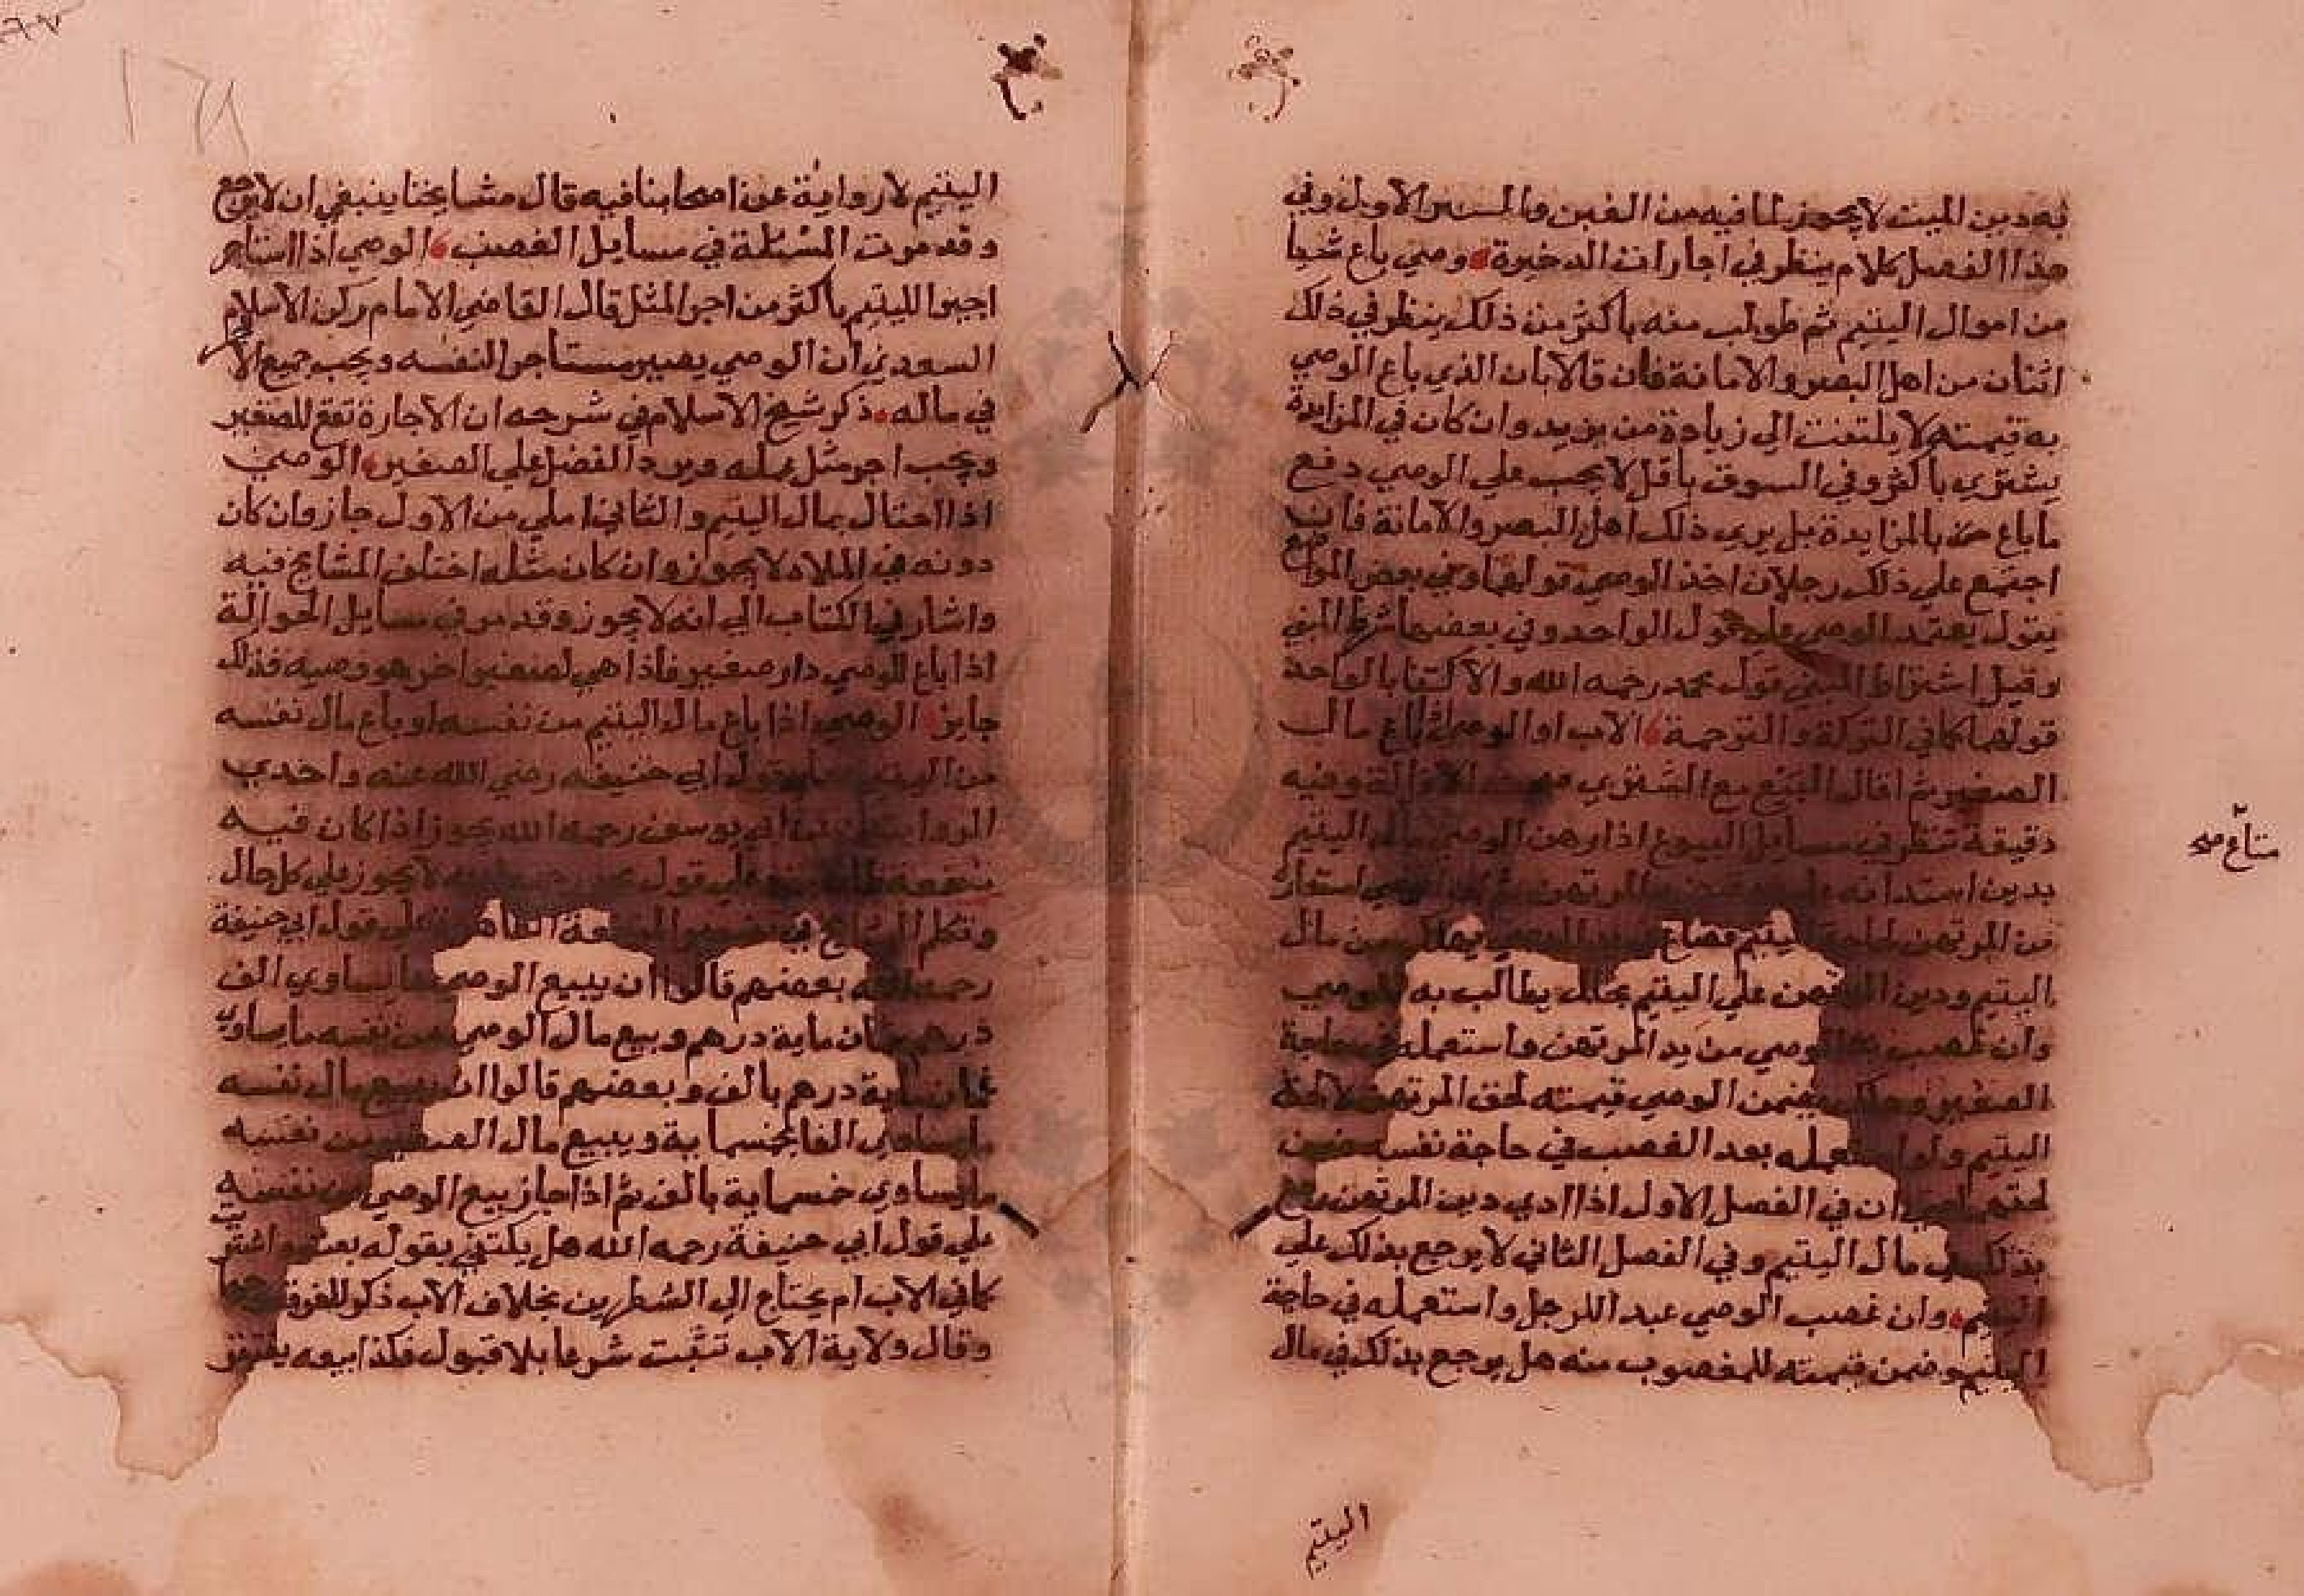 به دين الميت لا يجوز لما فيه من الغبن والمسير الاول وفي
هذا الفصل كلام ينظر في اجارات الدخيرة وصي باع شيا
من اموال اليتيم ثم طولب منه باكثر من ذلك ينظر في ذلك
اثنان من اهل البصر والامانة فان قالا بان الذي باع الوصي
به قيمته لا يلتفت الي زيادة من يزيد وان كان في المزايدة
يشتري باكثر وفي السوق باقل لا يجب علي الوصي دفع
ما باع بالمزايدة بل يري ذلك اهل البصر والامانة فان
اجتمع علي ذلك رجلان اخذ الوصي قولهما وفي بعض المواضع
يقول يعتمد الوصي علي قول الواحد وفي بعضها شرط المثني
وقيل اشتراط المثني قول محمد رحمه الله والاكتفا بالواحد
قولهما كما في التزكة والترجمة الاب او الوصي باع مال
الصغير ثم اقال البيع مع المشتري الاقالة وفيه
دقيقة تنظر في مسايل البيوع اذا رهن الوصي مال اليتيم
بدين استدانه المرتهن استعار
من المرتهن لحاجة اليتيم فضاع من مال
اليتيم ودين المرتهن علي اليتيم بحاله يطالب به الوصي
وان غصب الوصي من يد المرتهن واستعمله في حاجة
الصغير يضمن الوصي قيمته لحق المرتهن لا لحق
اليتيم ولو استعمله بعد الغصب في حاجة نفسه ضمن
لحقهم ان في الفصل الاول اذا ادي دين المرتهن رجع
بذلك في مال اليتيم وفي الفصل الثاني لا يرجع بذلك علي
اليتيم وان غصب الوصي عبد الرجل واستعمله في حاجة
اليتيم وضمن قيمته للمغصوب منه هل يرجع بذلك في مال
متاع صح
اليتيم
اليتيم لا رواية عن اصحابنا فيه قال مشايخنا ينبغي ان لا يرجع
وقد مرت المسئلة في مسايل الغصب الوصي اذا استاجر
اجيرا لليتيم باكثر من اجر المثل قال القاضي الامام ركن الاسلام
السعودي ان الوصي يصير مستاجرا لنفسه ويجب جميع الاجر
في ماله ذكر شيخ الاسلام في شرحه ان الاجارة تقع للصغير
ويجب اجر مثل عمله ويرد الفضل علي الصغير الوصي
اذا احتال بمال اليتيم والثاني املي من الاول جاز وان كان
دونه في الملاه لا يجوز وان كان مثله اختلف المشايخ فيه
واشار في الكتاب الي انه لا يجوز وقد مر في مسايل الحوالة
اذا باع الوصي دار صغير فاذا هي لصغير اخر هو وصيه فذلك
جايز الوصي اذا باع مال اليتيم من نفسه او باع مال نفسه
من اليتيم قول ابي حنيفه رضي الله عنه واحدي
الروايتين عن ابي يوسف رحمه الله يجوز اذا كان فيه
منفعة علي قول لا يجوز علي كل حال
وتكلم المشايخ في تفسير المنفعة الظاهرة علي قول ابي حنيفة
رحمه الله بعضهم قالوا ان يبيع الوصي ما يساوي الف
درهم ثمان ماية درهم وبيع مال الوصي من نفسه ما يساوي
ثمان ماية درهم بالف وبعضهم قالوا ان يبيع مال نفسه
ما يساوي الفا بخمسماية ويبيع مال الصغير من نفسه
ما يساوي خمسماية بالف ثم اذا جاز بيع الوصي من نفسه
علي قول ابي حنيفة رحمه الله هل يكتفي بقوله بعت واشتريت
كما في الاب ام يحتاج الي الشطرين بخلاف الاب ذكر
وقال ولاية الاب تثبت شرعا بلا قبول فكذا بيعه يفتقر